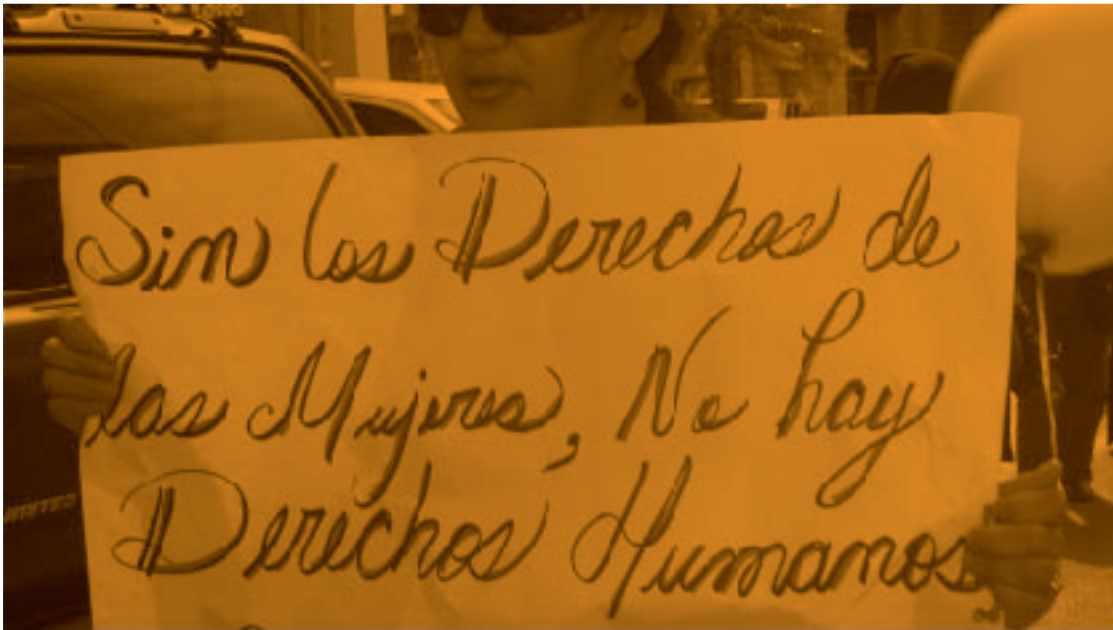 Sin los Derechos de
las Mujeres, No hay
Derechos Humanos